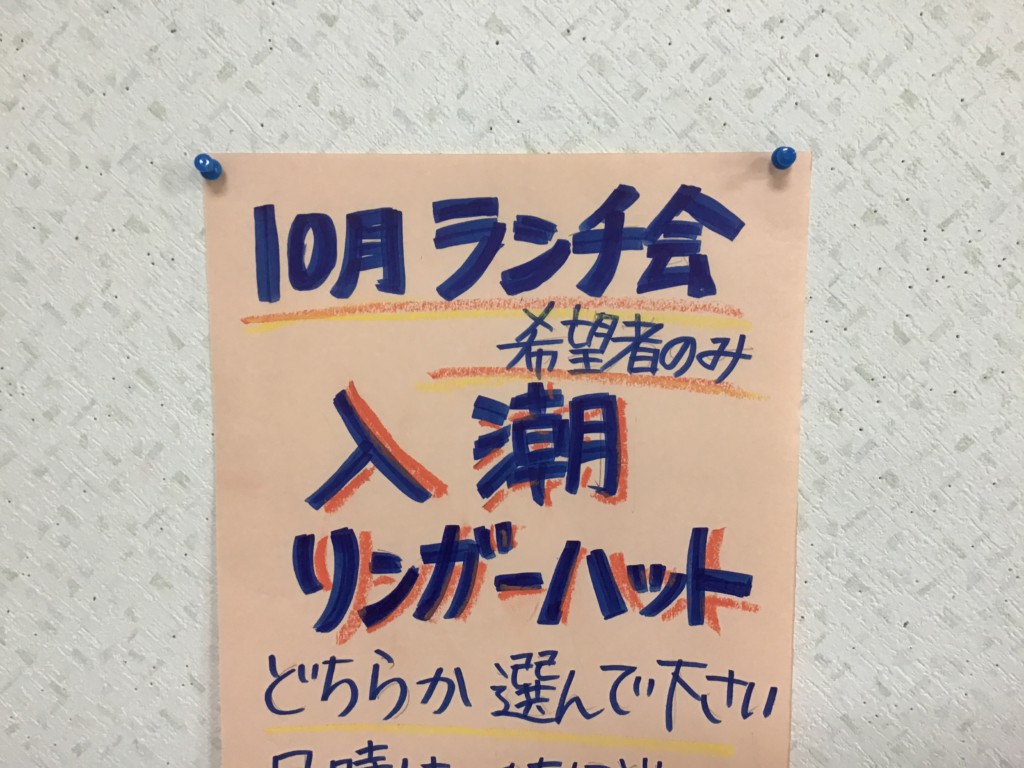 10月ランチ会
希望者のみ
入潮
リンガーハット
どちらか選んで下さい